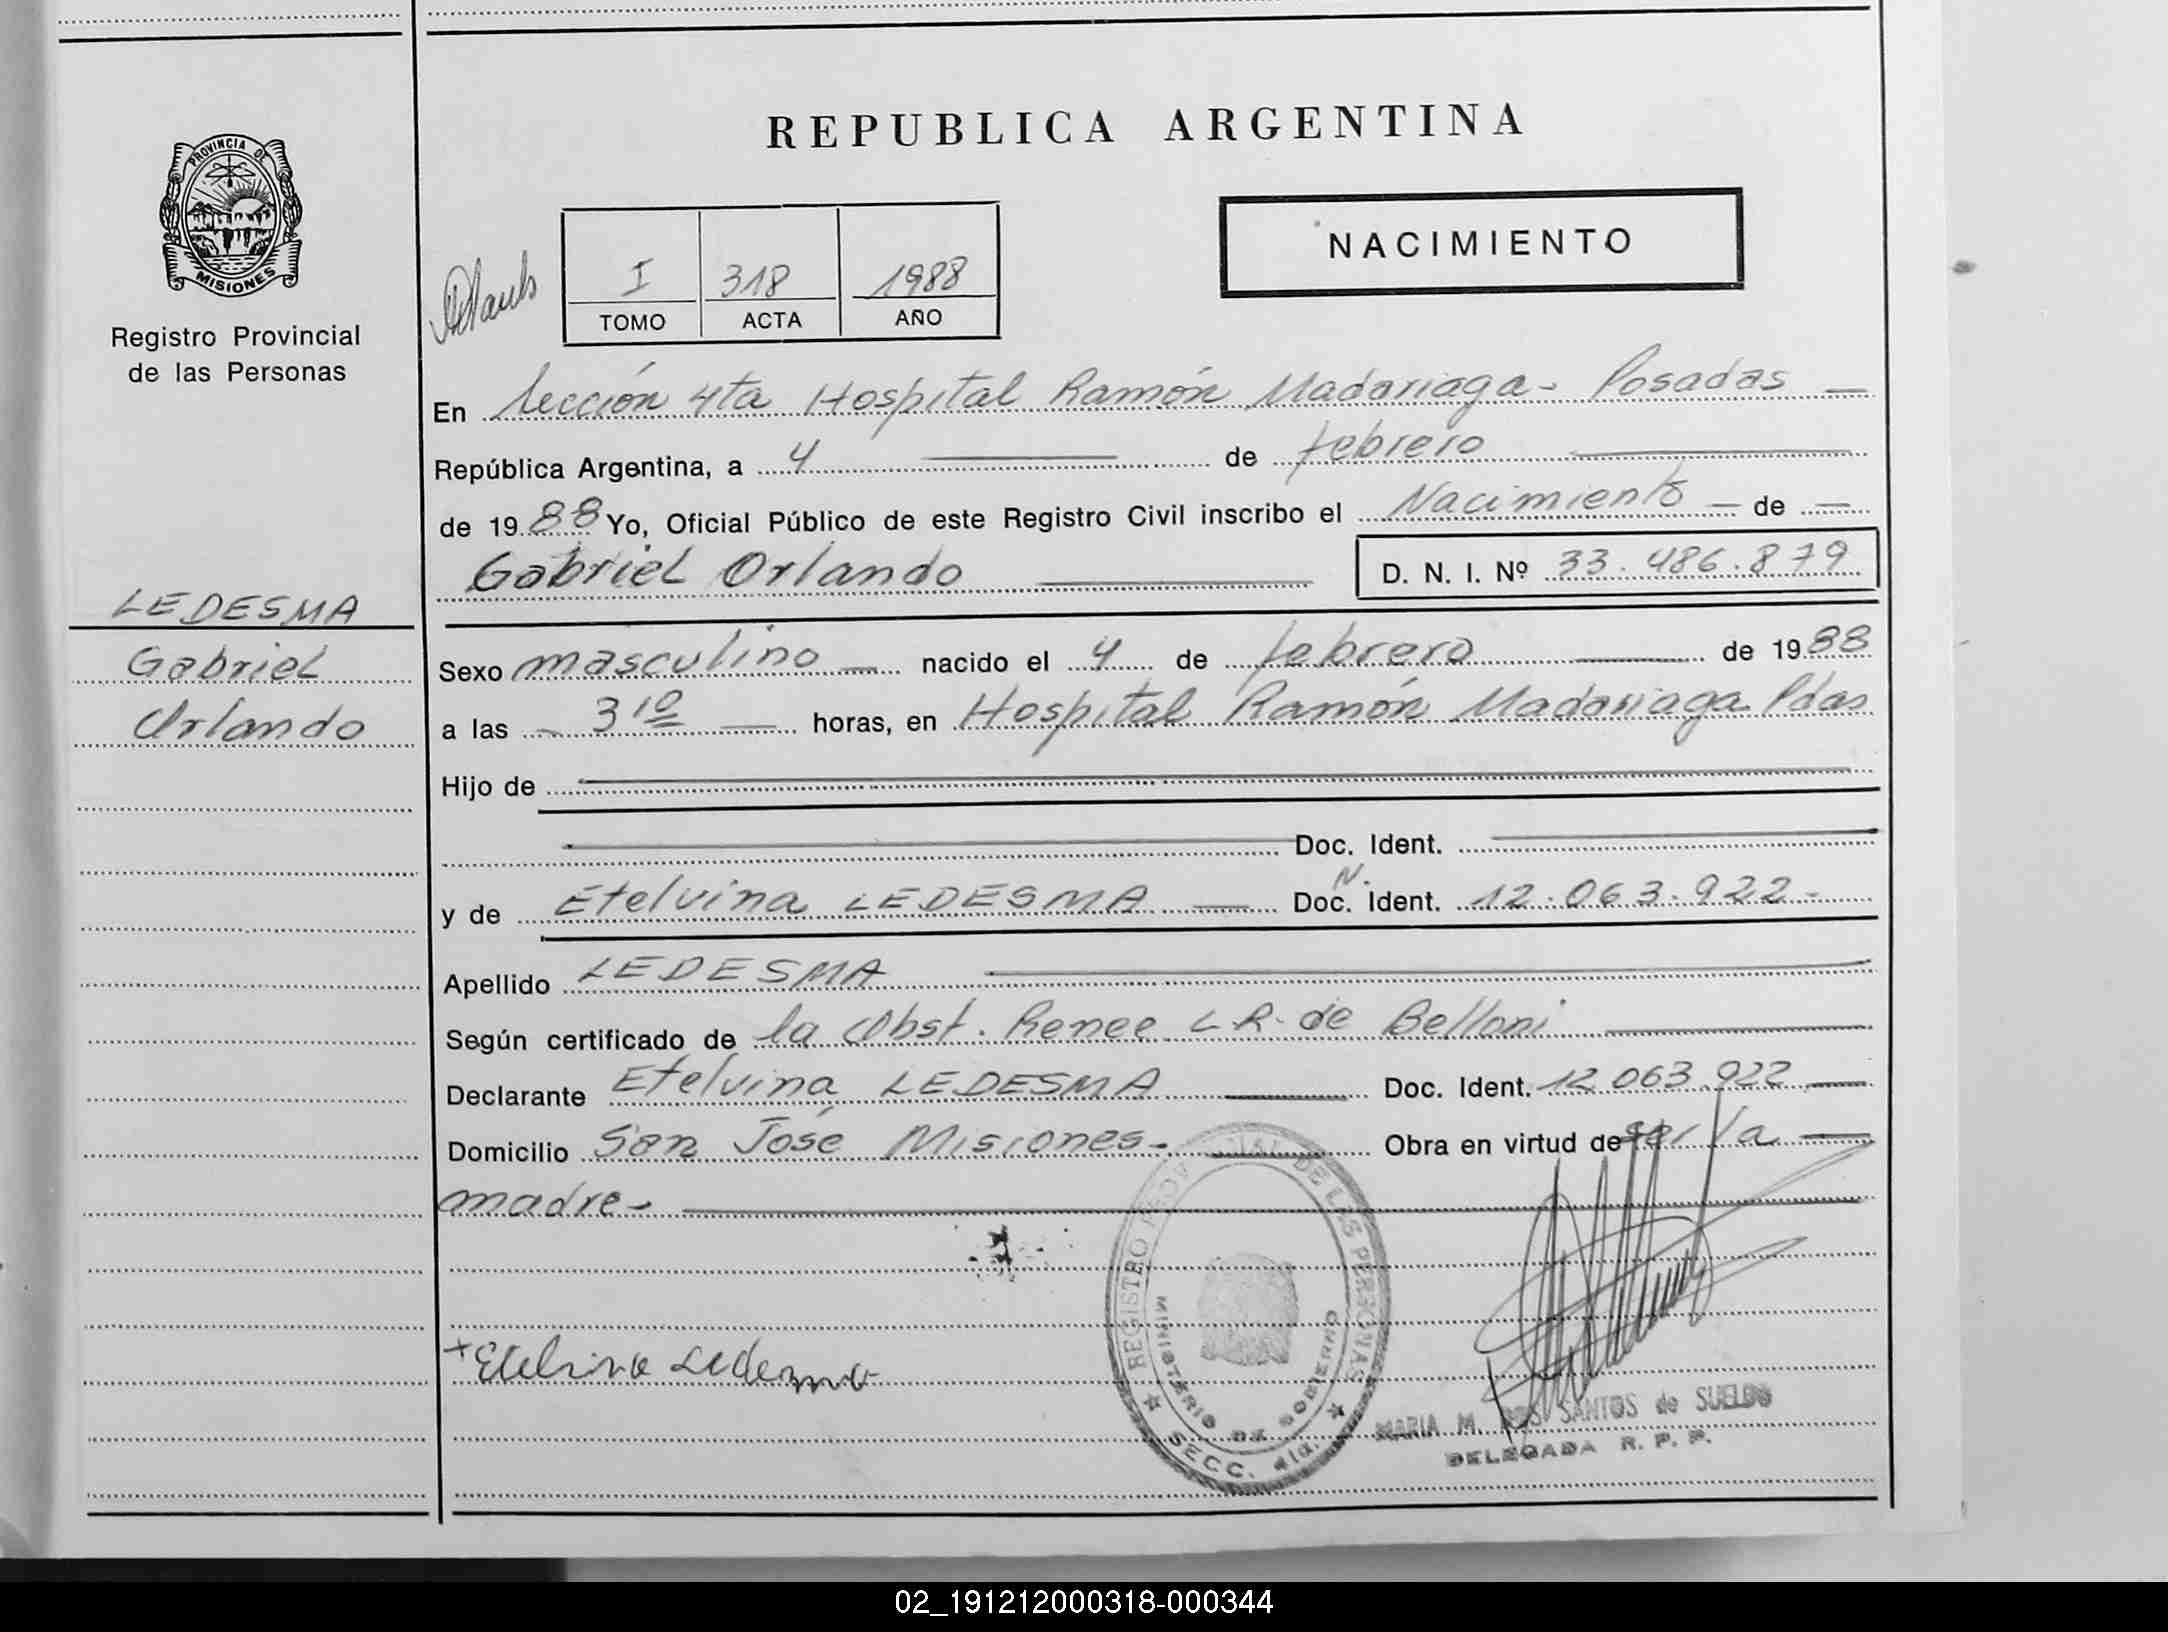 REPUBLICA ARGENTINA
PROVINCIA DE
MISIONES
Registro Provincial
de las Personas
NACIMIENTO
I 318 1988
TOMO ACTA AÑO
En Sección 4ta Hospital Ramón Madariaga - Posadas —
República Argentina, a 4 — de febrero —
de 1988 Yo, Oficial Público de este Registro Civil inscribo el Nacimiento — de —
Gabriel Orlando — D. N. I. Nº 33.486.879
LEDESMA
Gabriel
Orlando
Sexo masculino — nacido el 4 de febrero — de 1988
a las - 3 10 — horas, en Hospital Ramón Madariaga Pdas
Hijo de —
— Doc. Ident. —
N.
y de Etelvina LEDESMA — Doc. Ident. 12.063.922-
Apellido LEDESMA —
Según certificado de la Obst. Renee L.R. de Belloni —
Declarante Etelvina LEDESMA — Doc. Ident. 12.063.922 —
Domicilio San José Misiones. — Obra en virtud de ser la —
madre - —
REGISTRO PROVINCIAL DE LAS PERSONAS
MINISTERIO DE GOBIERNO
SECC. 4ta.
+ Etelvina Ledezma
MARIA M. DOS SANTOS de SUELDO
DELEGADA R. P. P.
02_191212000318-000344